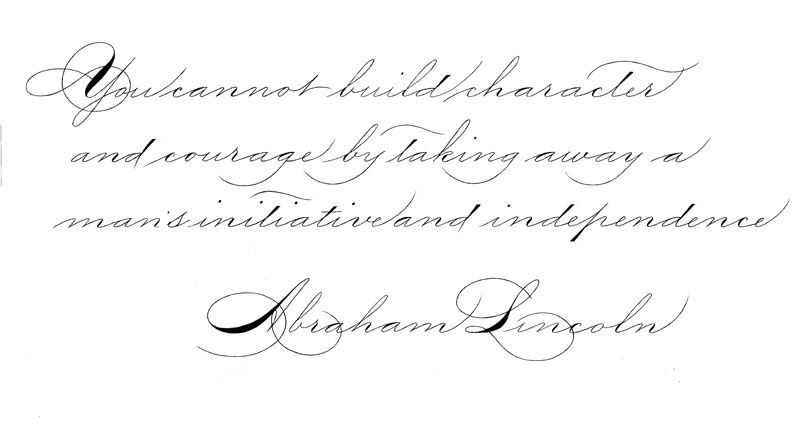 You cannot build character
and courage by taking away a
man's initiative and independence
Abraham Lincoln